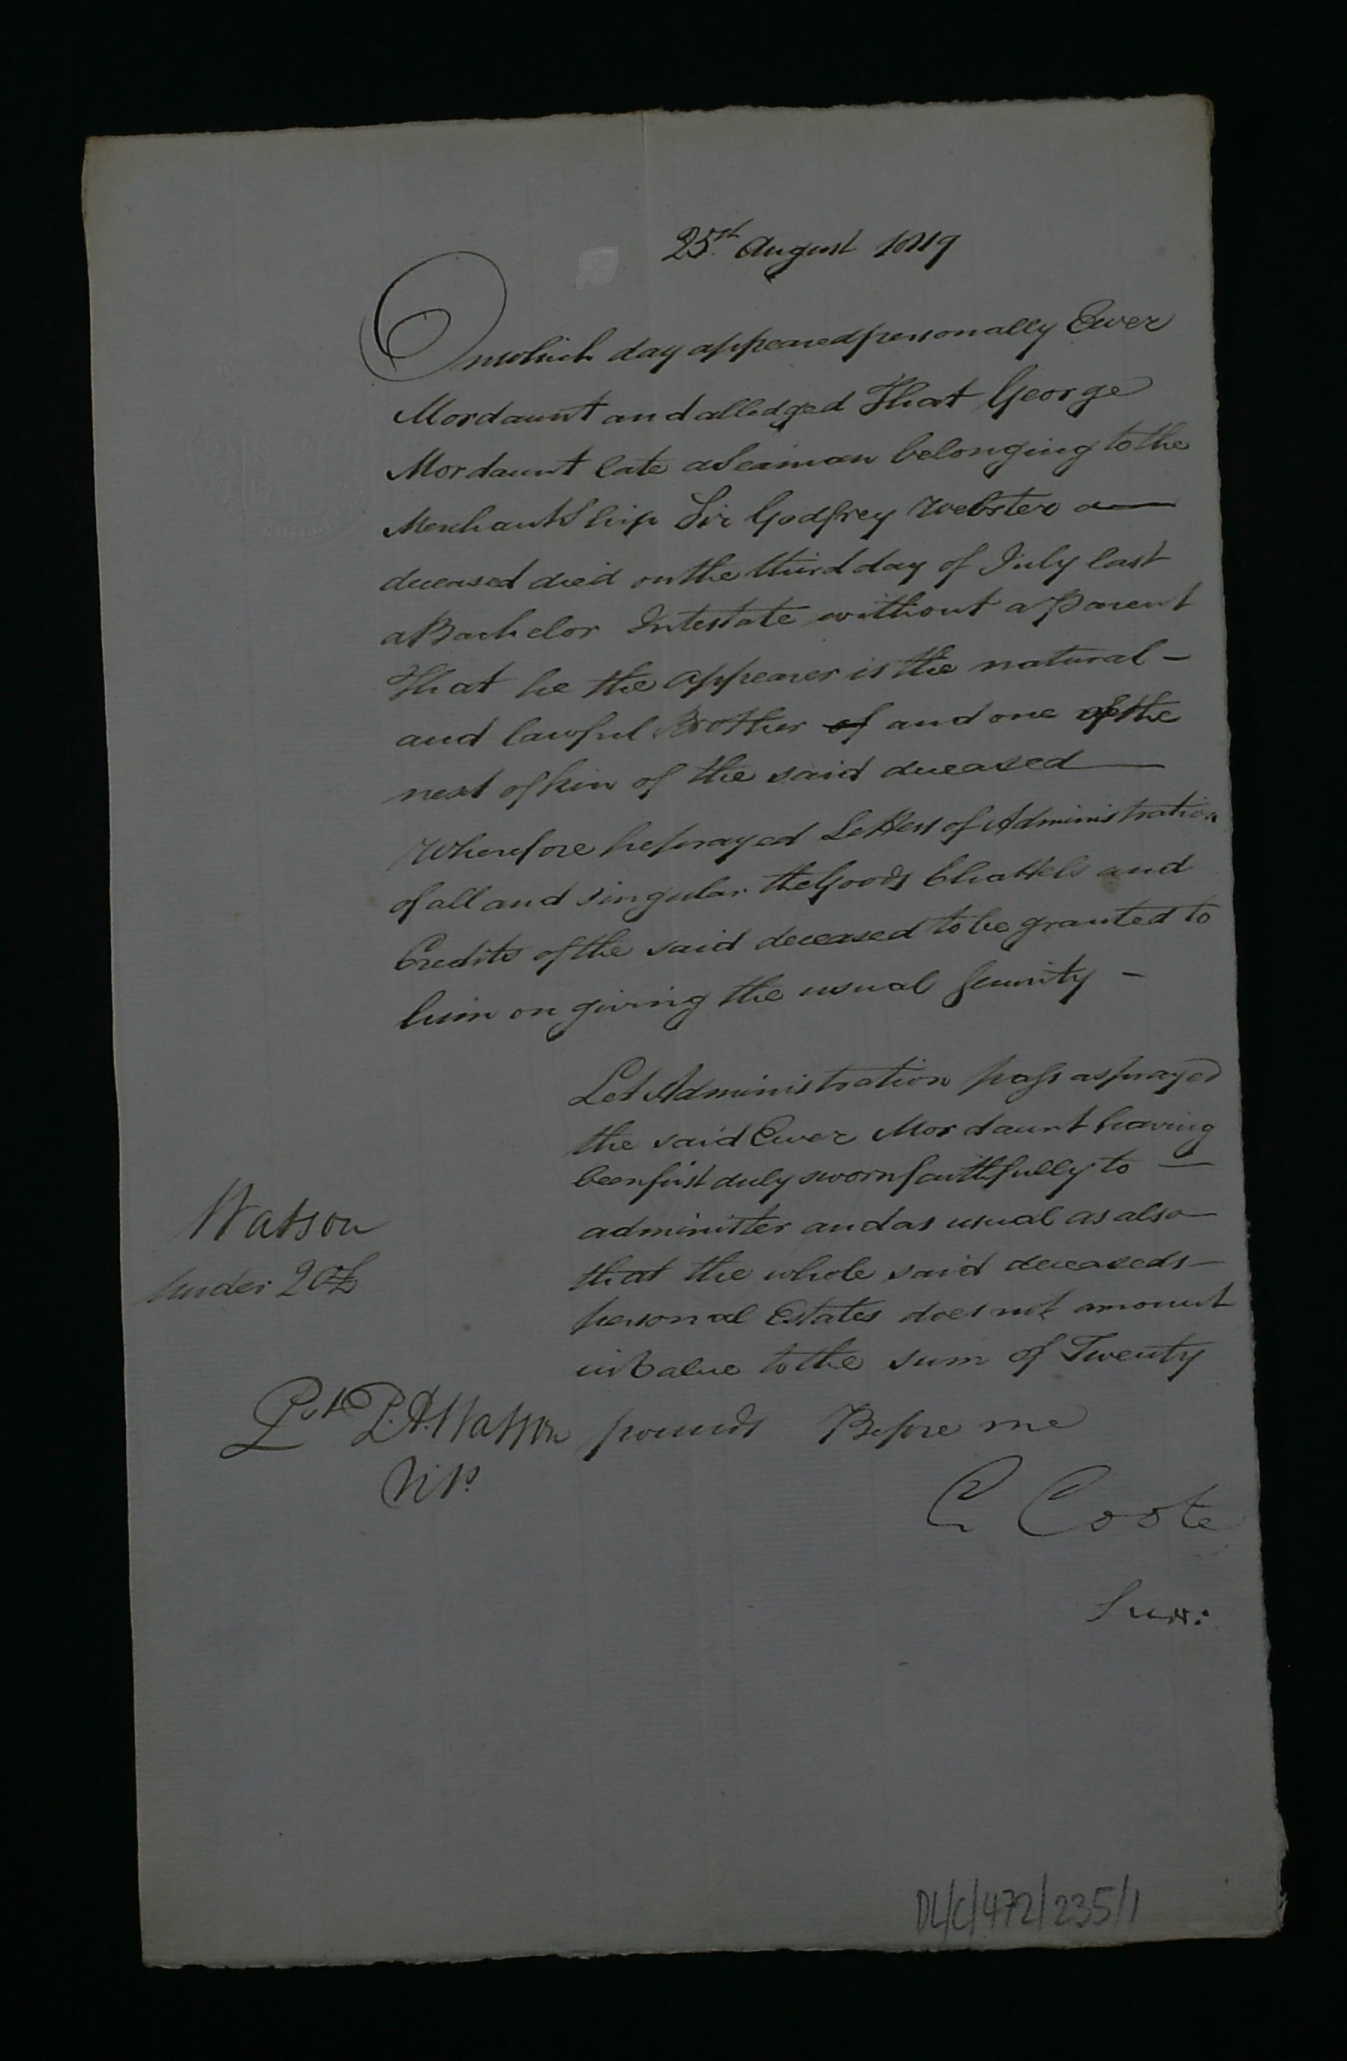 25th August 1819
On which day appeared personally Ewer
Mordaunt and alledged That George
Mordaunt late a Seaman belonging to the
Merchant Ship Sir Godfrey Webster a
deceased died on the third day of July last
a Bachelor Intestate without a Parent
That he the appearer is the natural –
and lawful Brother of and one of the
next of kin of the said deceased
Wherefore he prayed Letters of Administration
of all and singular the Goods Chattels and
Credits of the said deceased to be granted to
him on giving the usual Security –
Let Administration pass as prayed
the said Ewer Mordaunt having
been first duly sworn faithfully to –
administer and as usual as also
that the whole said deceaseds –
personal Estates does not amount
in Value to the sum of Twenty
pounds Before me
C Coote
Surr:
Watson
Under 20£
Watson
DL/C/472/235/1